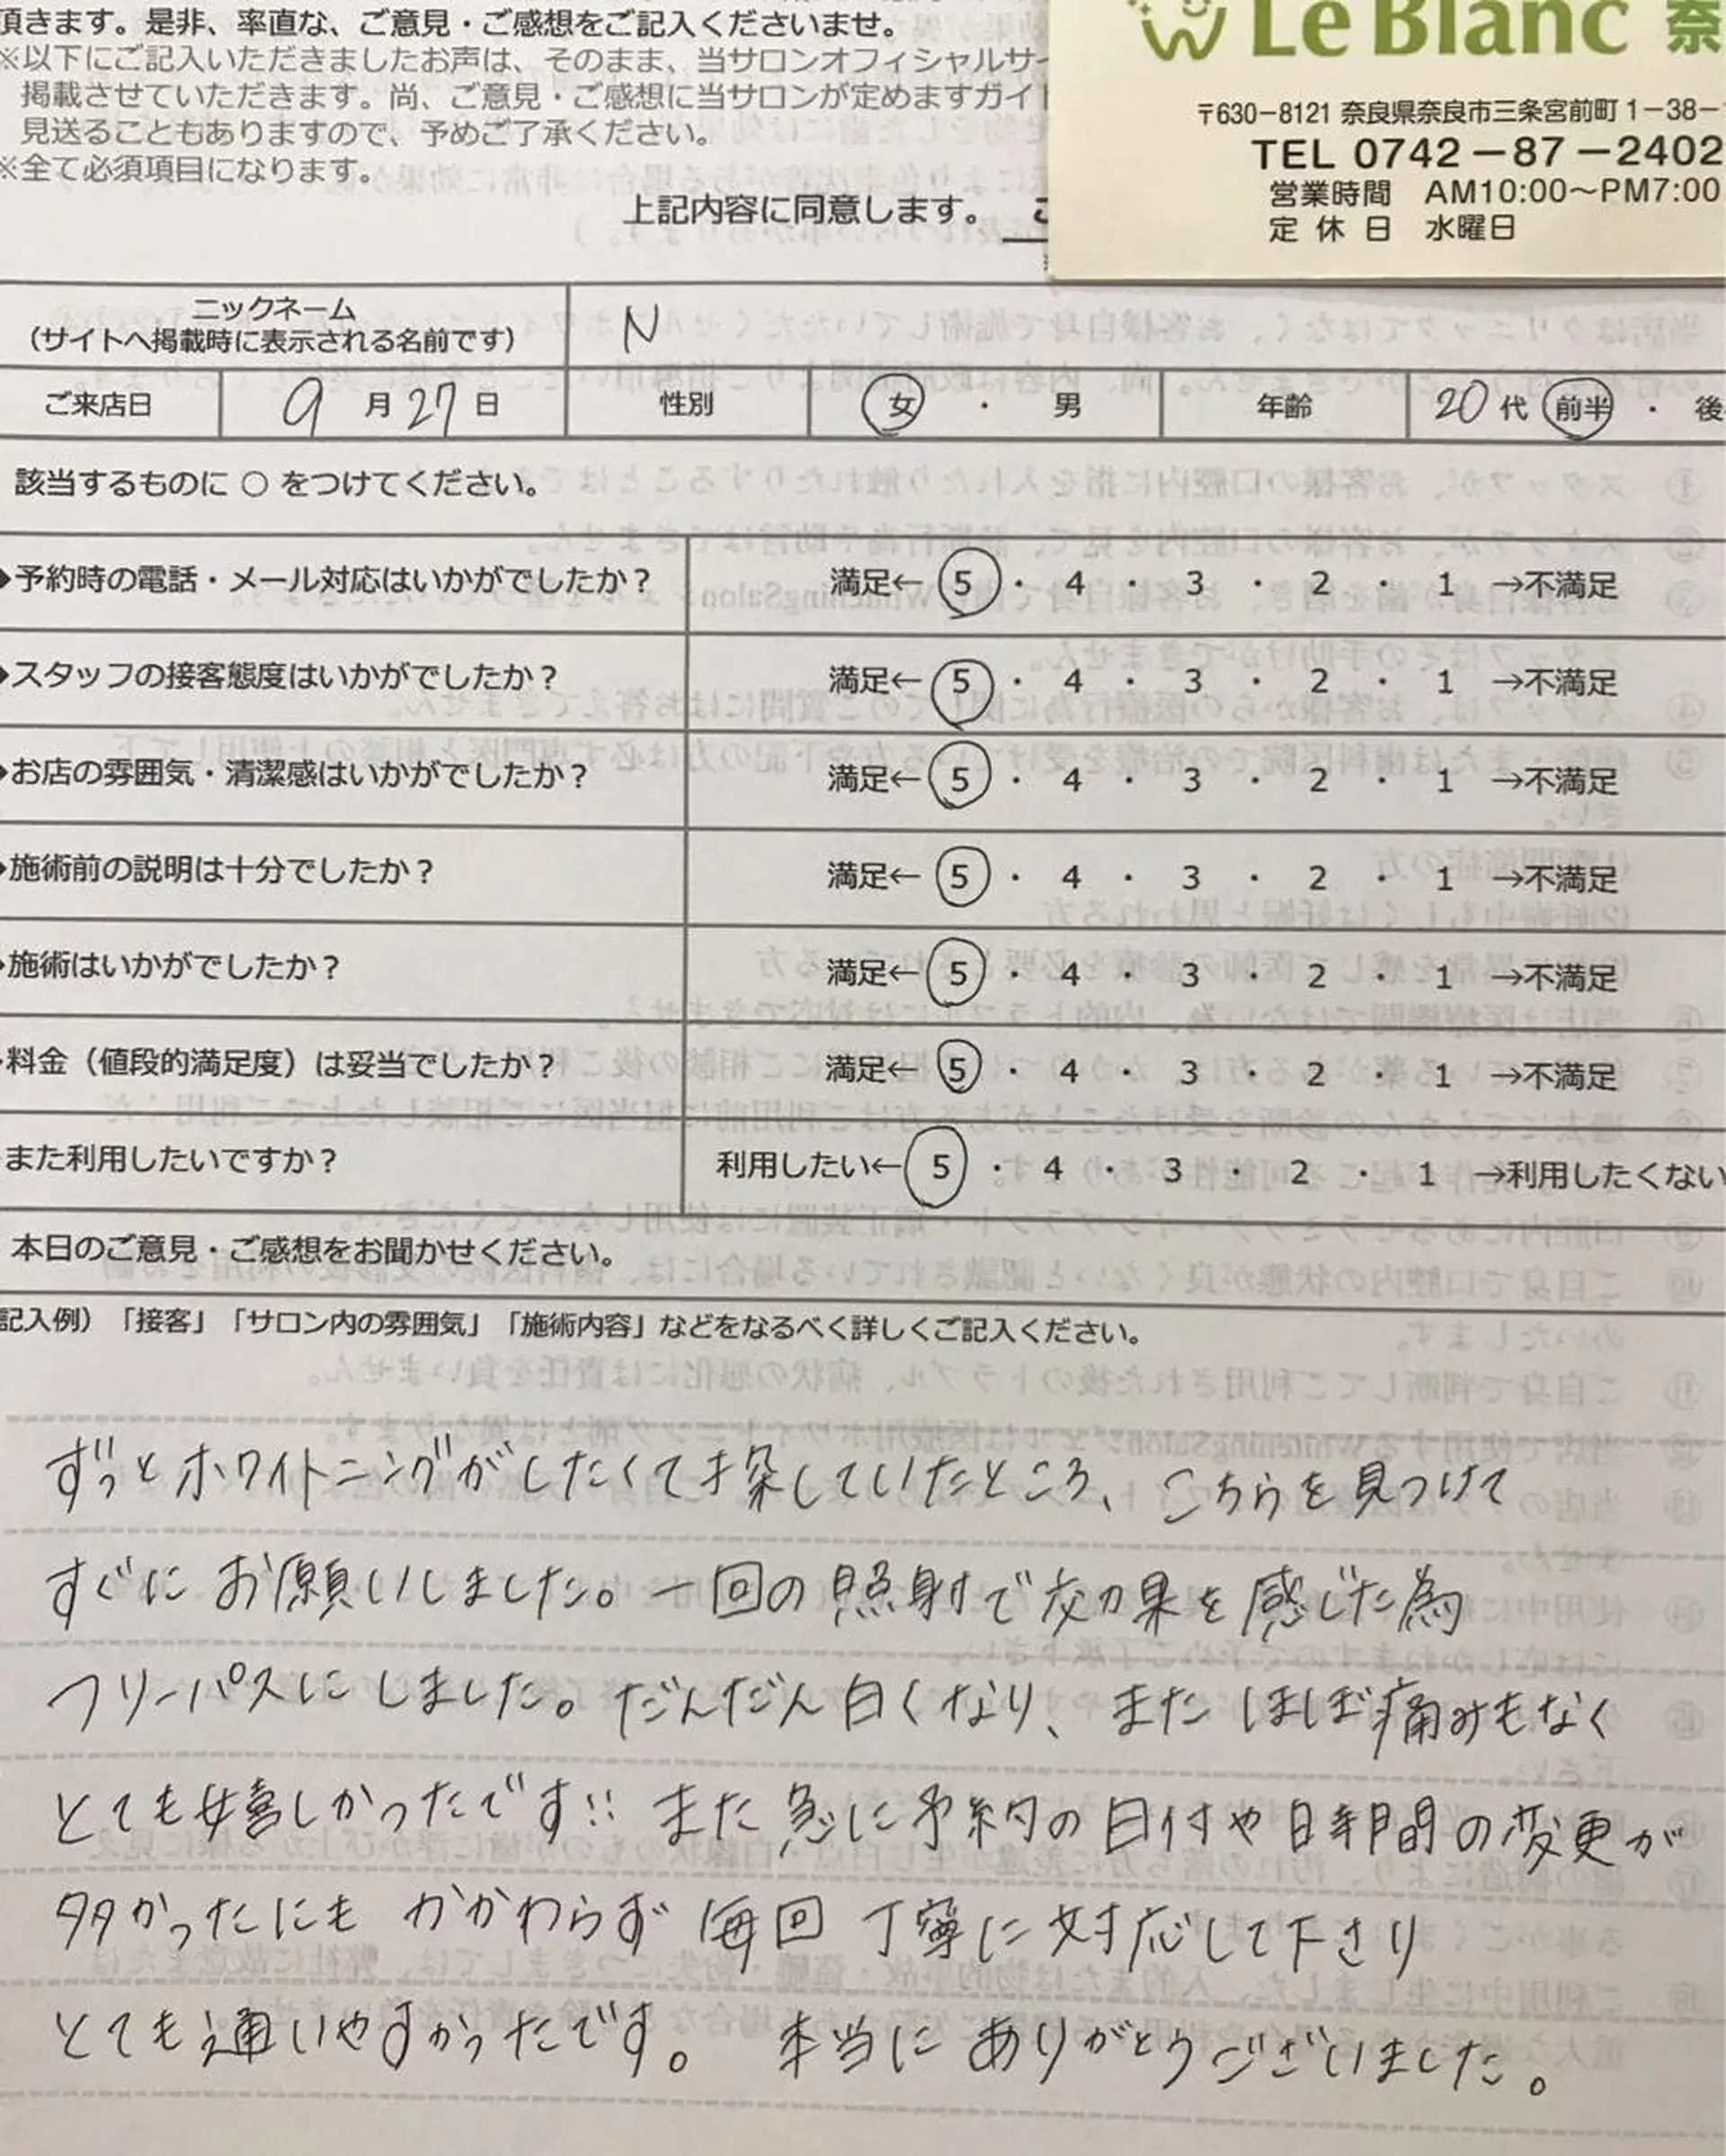 頂きます。是非、率直な、ご意見・ご感想をご記入くださいませ。
※以下にご記入いただきましたお声は、そのまま、当サロンオフィシャルサ
掲載させていただきます。尚、ご意見・ご感想に当サロンが定めますガイ
見送ることもありますので、予めご了承ください。
※全て必須項目になります。
上記内容に同意します。
Le Blanc 奈
〒630-8121 奈良県奈良市三条宮前町1-38-
TEL 0742-87-2402
営業時間 AM10:00~PM7:00
定休日 水曜日
ニックネーム
(サイトへ掲載時に表示される名前です) N
ご来店日 9月27日 性別 女・男 年齢 20代 前半・後
該当するものに○をつけてください。
◆予約時の電話・メール対応はいかがでしたか? 満足← 5・4・3・2・1 →不満足
◆スタッフの接客態度はいかがでしたか? 満足← 5・4・3・2・1 →不満足
◆お店の雰囲気・清潔感はいかがでしたか? 満足← 5・4・3・2・1 →不満足
◆施術前の説明は十分でしたか? 満足← 5・4・3・2・1 →不満足
◆施術はいかがでしたか? 満足← 5・4・3・2・1 →不満足
◆料金(値段的満足度)は妥当でしたか? 満足← 5・4・3・2・1 →不満足
また利用したいですか? 利用したい← 5・4・3・2・1 →利用したくない
本日のご意見・ご感想をお聞かせください。
記入例)「接客」「サロン内の雰囲気」「施術内容」などをなるべく詳しくご記入ください。
ずっとホワイトニングがしたくて探していたところ、こちらを見つけて
すぐにお願いしました。一回の照射で効果を感じた為
フリーパスにしました。だんだん白くなり、またほぼ痛みもなく
とても嬉しかったです!! また急に予約の日付や日時間の変更が
多かったにもかかわらず毎回丁寧に対応して下さり
とても通いやすかったです。 本当にありがとうございました。